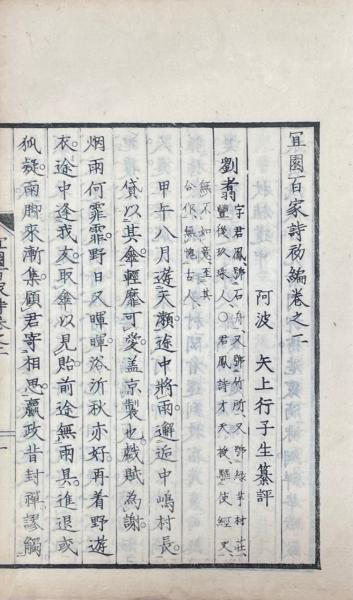 宜園百家詩初編卷之二
阿波 矢上行子生纂評
劉翥 字君鳳號石舟又號竹所又號綠芋村莊
豐後玖珠人○君鳳詩才天授驅使經史
無不如意至其
合作無愧古人
甲午八月遊天瀨途中將雨邂逅中嶋村長
貸以其傘輕靡可愛盖京製也戲賦為謝
烟雨何霏霏野日又暉暉浴沂秋亦好再着野遊
衣途中逢我友取傘以見貽前途無雨具進退或
狐疑雨脚來漸集顧君寄相思嬴政昔封禪謬觸